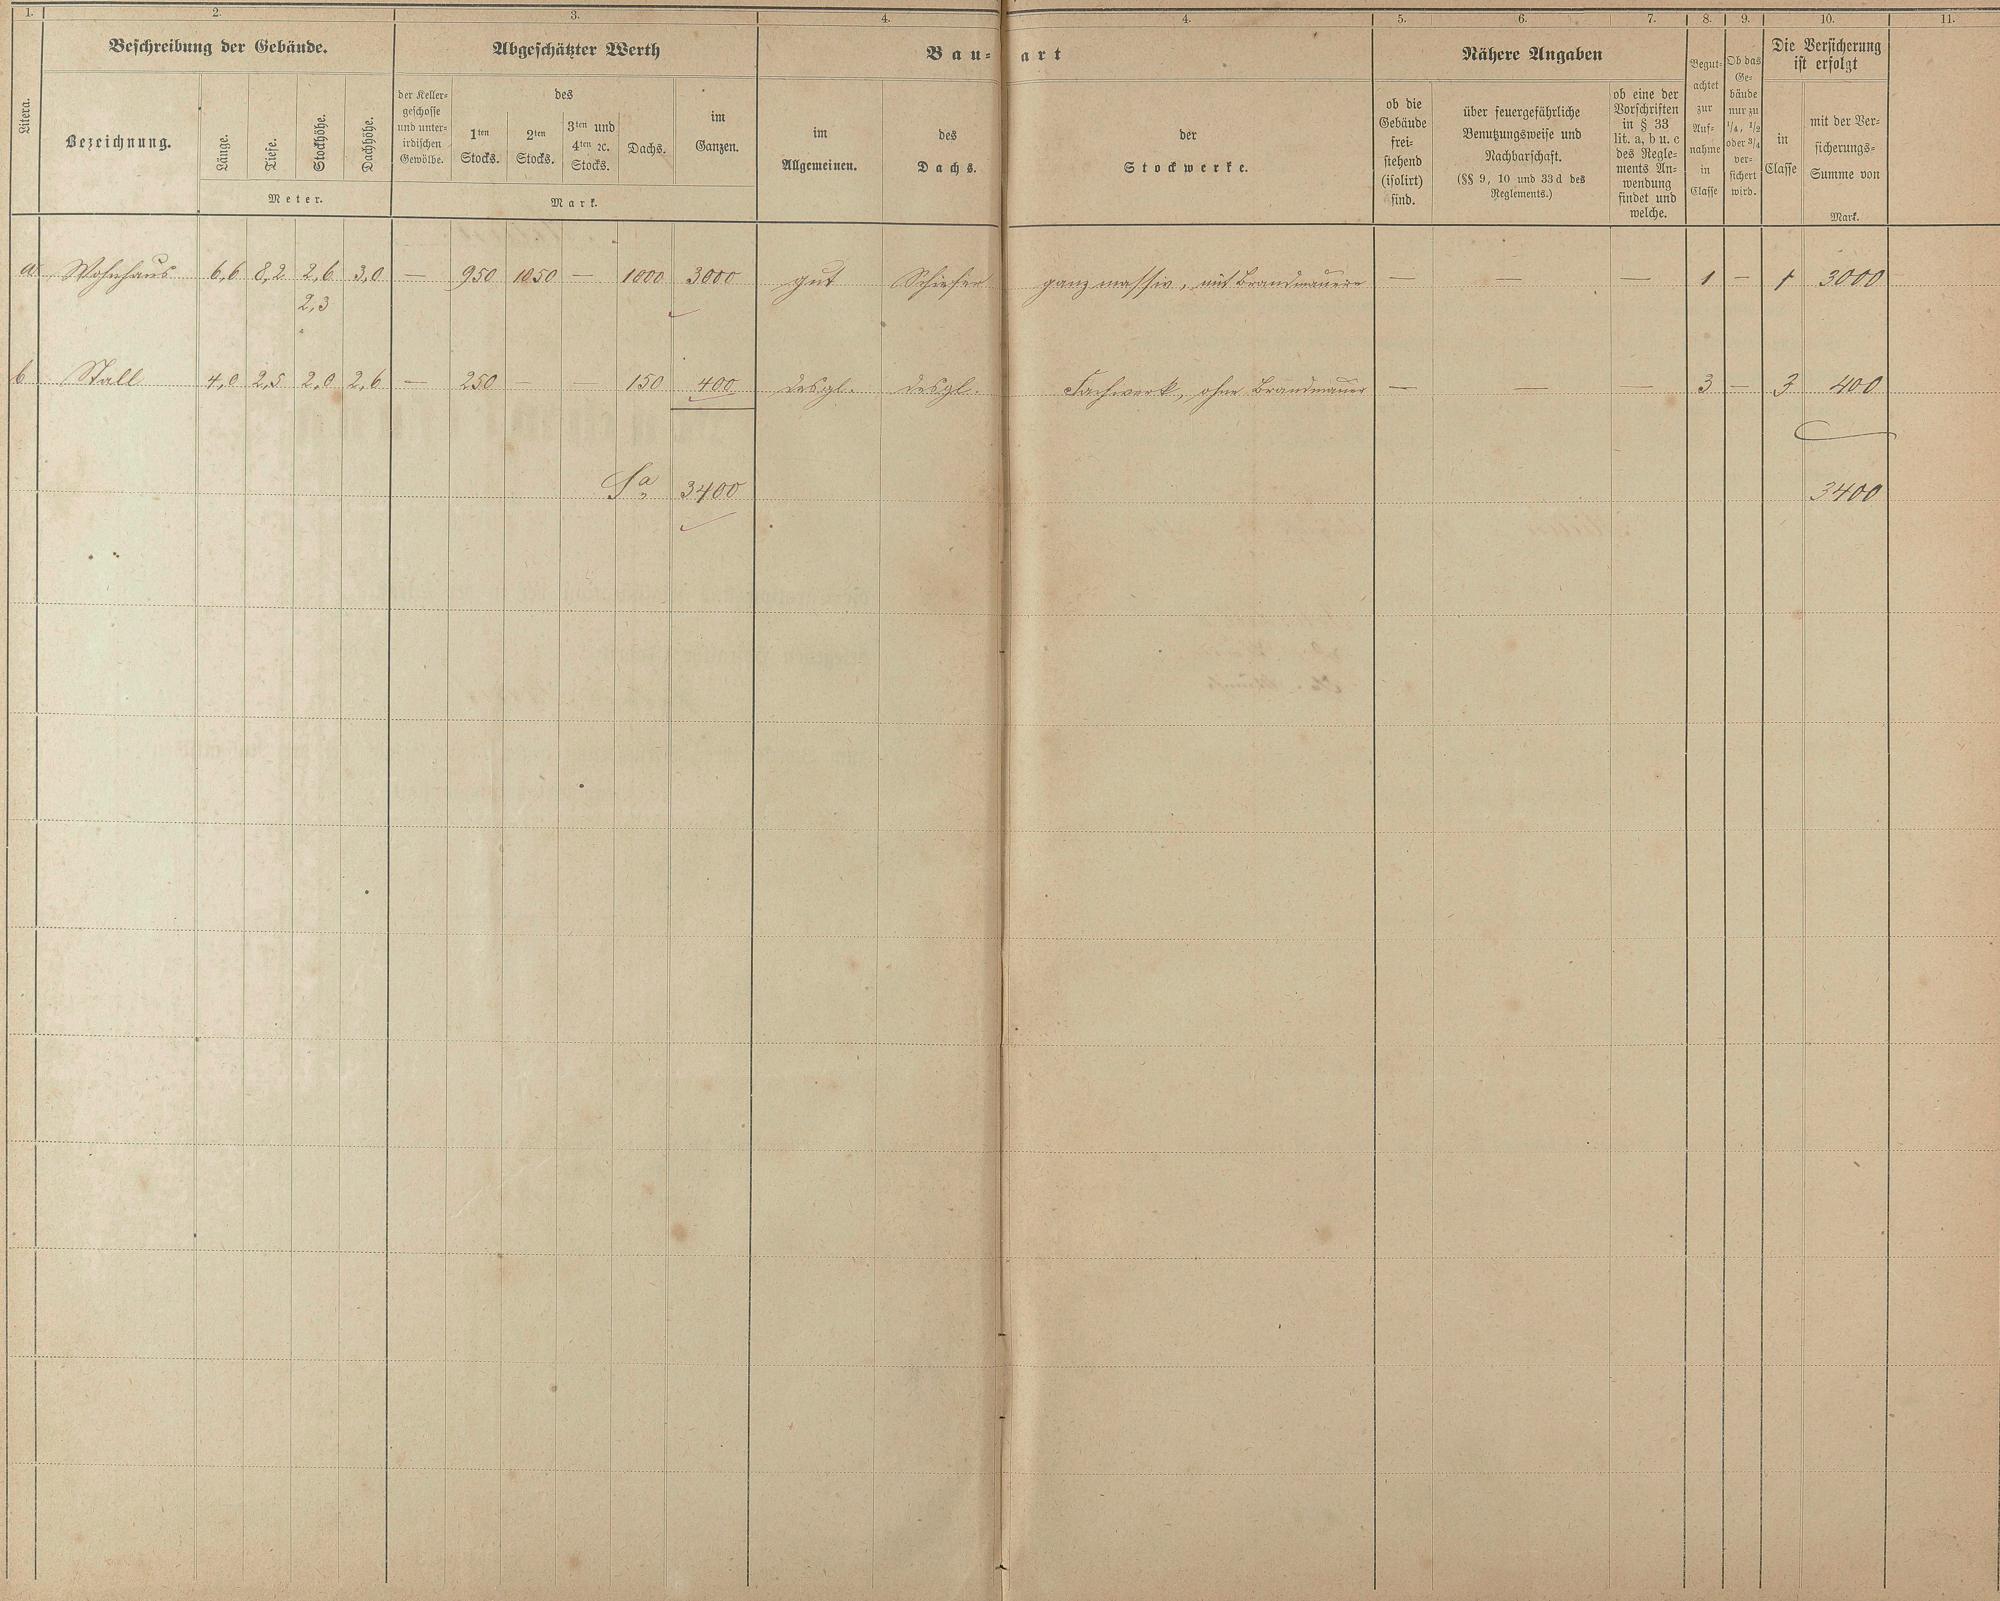 1. 2. 3. 4. 4. 5. 6. 7. 8. 9. 10. 11.
Litera.
Beschreibung der Gebäude.
Bezeichnung.
Länge.
Tiefe.
Stockhöhe.
Dachhöhe.
Meter.
Abgeschätzter Werth
der Keller-
geschosse
und unter-
irdischen
Gewölbe.
des
1ten
Stocks.
2ten
Stocks.
3ten und
4ten ꝛc.
Stocks.
Dachs.
im
Ganzen.
Mark.
Bau-art
im
Allgemeinen.
des
Dachs.
der
Stockwerke.
Nähere Angaben
ob die
Gebäude
frei-
stehend
(isolirt)
sind.
über feuergefährliche
Benutzungsweise und
Nachbarschaft.
(§§ 9, 10 und 33 d des
Reglements.)
ob eine der
Vorschriften
in § 33
lit. a, b u. c
des Regle-
ments An-
wendung
findet und
welche.
Begut-
achtet
zur
Auf-
nahme
in
Classe
Ob das
Ge-
bäude
nur zu
1/4, 1/2
oder 3/4
ver-
sichert
wird.
Die Versicherung
ist erfolgt
in
Classe
mit der Ver-
sicherungs-
Summe von
Mark.
a Wohnhaus 6,6 8,2 2,6 3,0 — 950 1050 — 1000 3000 gut Schiefer ganz massiv, mit Brandmauern — — — 1 — 1 3000
2,3
b Stall 4,0 2,5 2,0 2,6 — 250 — — 150 400 desgl. desgl. Fachwerk, ohne Brandmauer — — — 3 — 3 400
Sa 3400 3400